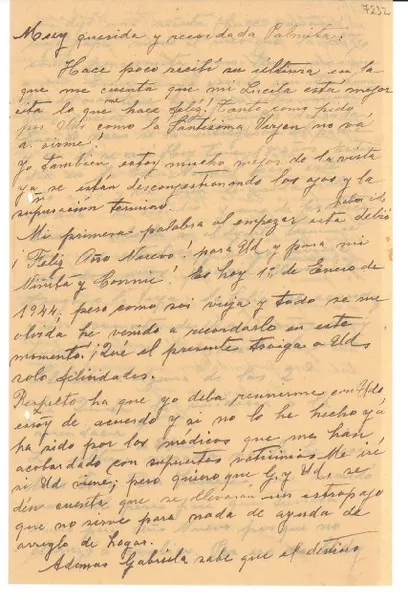 7232
Muy querida y recordada Palmita:
Hace poco recibí su última en la
que me cuenta que mi Lucila está mejor
ésta lo que me hace feliz! Tanto como pido
por Uds como la Santísima Virgen no vá
a oirme!
Yo tambien estoy mucho mejor de la vista
ya se están descongestionando los ojos y la
supuración terminó.
Mi primera palabra al empezar ésta debió haber sido
¡Feliz Año Nuevo! para Ud y para mi
Niñita y Connie! Es hoy 1º de Enero de
1944, pero como soi vieja y todo se me
olvida he venido a recordarlo en este
momento. ¡Que el presente traiga a Uds
solo felicidades.
Respecto ha que yo deba reunirme con Uds
estoy de acuerdo y si no lo he hecho yá
ha sido por los medicos que me han
acobardado con supuestos vaticinios. Me iré
si Ud viene; pero quiero que G. y Ud. se
dén cuenta que se llevaran un estropajo
que no sirve para nada de ayuda de
arreglo de hogar.
Ademas Gabriela sabe que el